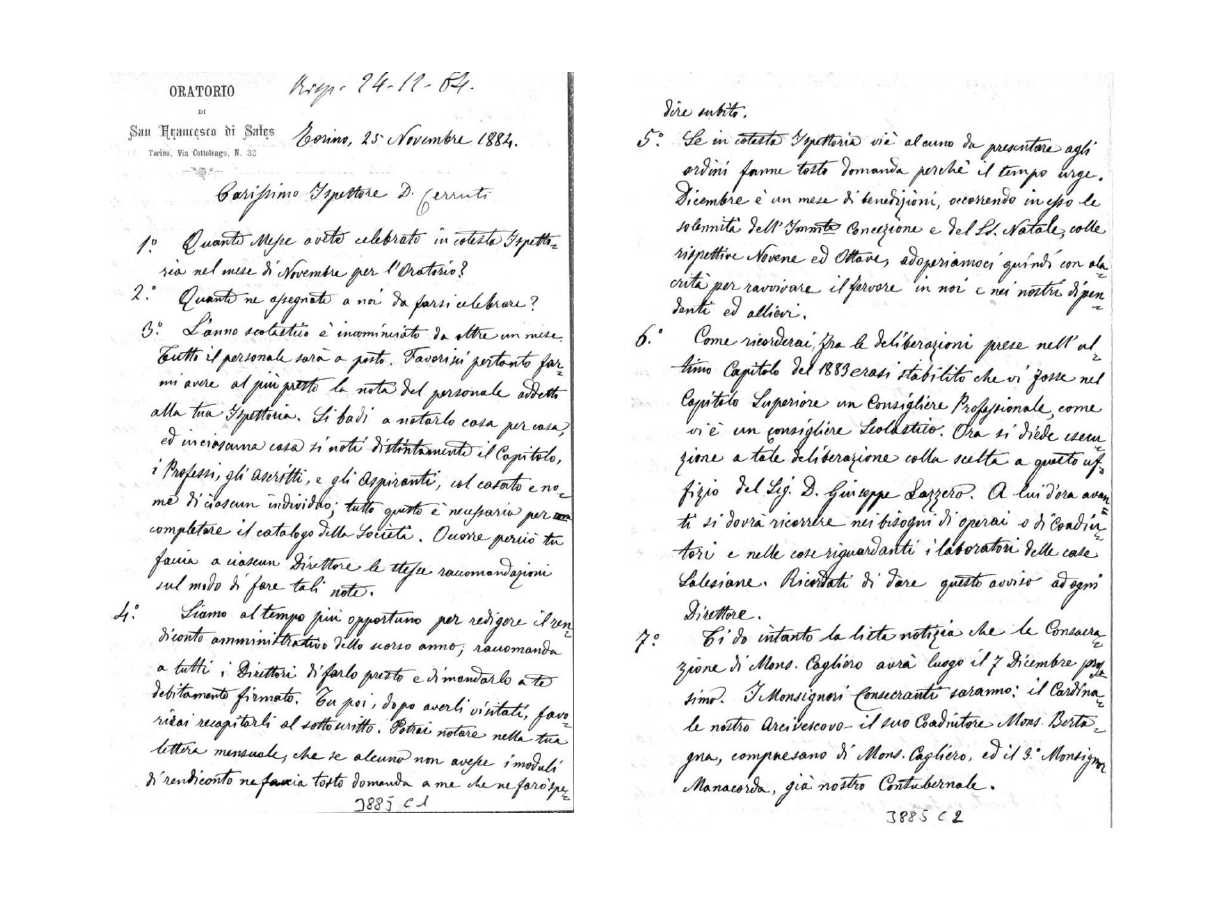 ORATORIO
DI
San Francesco di Sales
Torino, Via Cottolengo, N. 32
Risp. 24-12-84.
Torino, 25 Novembre 1884.
Carissimo Ispettore D. Cerruti
1º Quante Messe avete celebrato in cotesta Ispetto=
ria nel mese di Novembre per l'Oratorio?
2º Quante ne assegnate a noi da farsi celebrare?
3º L'anno scolastico è incominciato da oltre un mese.
Tutto il personale sarà a posto. Favorisci pertanto far=
mi avere al più presto la nota del personale addetto
alla tua Ispettoria. Si badi a notarlo casa per casa,
ed in ciascuna casa si noti distintamente il Capitolo,
i Professi, gli Ascritti, e gli Aspiranti, col casato e no=
me di ciascun individuo; tutto questo è necessario per
completare il catalogo della Società. Occorre perciò tu
faccia a ciascun Direttore le stesse raccomandazioni
sul modo di fare tali note.
4º Siamo al tempo più opportuno per redigere il ren=
diconto amministrativo dello scorso anno; raccomanda
a tutti i Direttori di farlo presto e di mandarlo a te
debitamente firmato. Tu poi, dopo averli visitati, favo=
rirai recapitarli al sottoscritto. Potrai notare nella tua
lettera mensuale, che se alcuno non avesse i moduli
di rendiconto ne faccia tosto domanda a me che ne farò spe=
3885 C 1
dire subito.
5º Se in cotesta Ispettoria vi è alcuno da presentare agli
ordini fanne tosto domanda perchè il tempo urge.
Dicembre è un mese di benedizioni, occorrendo in esso le
solennità dell'Immte Concezione e del SS. Natale, colle
rispettive Novene ed Ottave, adoperiamoci quindi con ala=
crità per ravvivare il fervore in noi e nei nostri dipen=
denti ed allievi.
6º Come ricorderai, fra le deliberazioni prese nell'ul=
timo Capitolo del 1883 erasi stabilito che vi fosse nel
Capitolo Superiore un Consigliere Professionale, come
vi è un consigliere Scolastico. Ora si diede esecu=
zione a tale deliberazione colla scelta a questo uf=
fizio del Sig. D. Giuseppe Lazzero. A lui d'ora avan=
ti si dovrà ricorrere nei bisogni di operai o di Coadiu=
tori e nelle cose riguardanti i laboratori delle case
Salesiane. Ricordati di dare questo avviso ad ogni
Direttore.
7º Ti do intanto la lieta notizia che la Consacra=
zione di Mons. Cagliero avrà luogo il 7 Dicembre pros=
simo. I Monsignori Consecranti saranno: il Cardina=
le nostro Arcivescovo - il suo Coadiutore Mons. Berta=
gna, compaesano di Mons. Cagliero, ed il 3º Monsignor
Manacorda, già nostro Contubernale.
3885 C 2